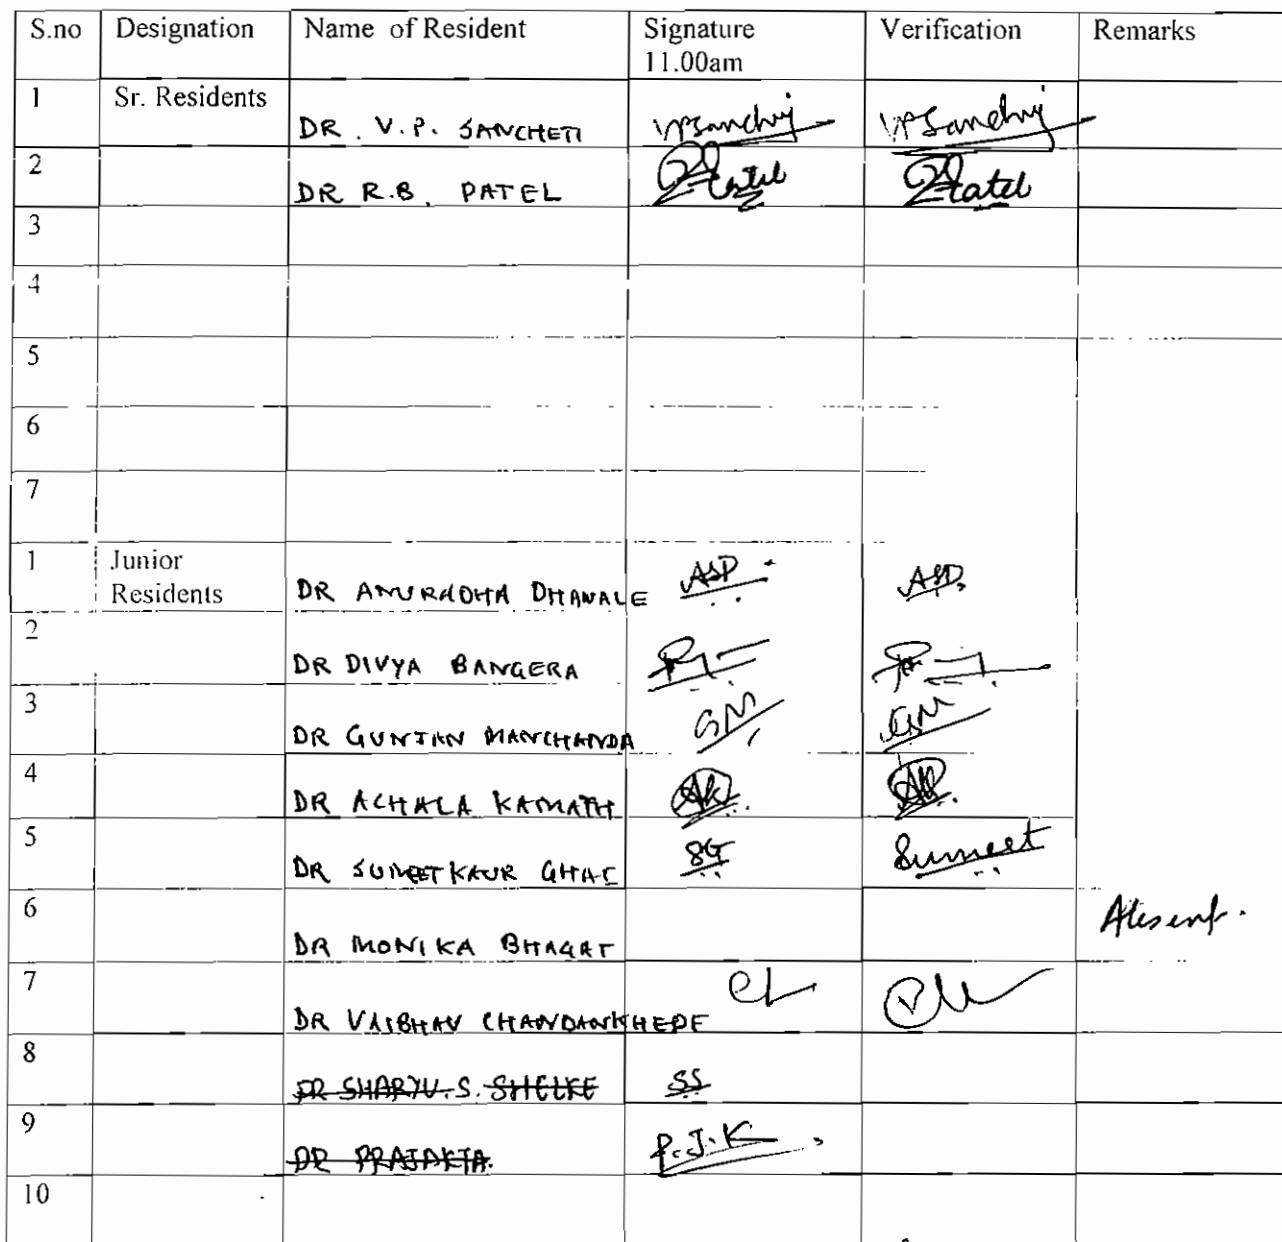 S.no Designation Name of Resident Signature 11.00am Verification Remarks
1 Sr. Residents DR. V.P. SANCHETI VPSancheti VPSancheti
2 DR R.B. PATEL Patel Patel
3
4
5
6
7
1 Junior Residents DR ANURADHA DHAWALE ASD ASD
2 DR DIVYA BANGERA
3 DR GUNJAN MANCHANDA GM GM
4 DR ACHALA KAMATH AK AK
5 DR SUMEETKAUR GHAI SG Sumeet
6 DR MONIKA BHAGAT Absent.
7 DR VAIBHAV CHANDANKHEDE
8 DR SHARYU.S. SHELKE SS
9 DR PRAJAKTA. P.J.K
10